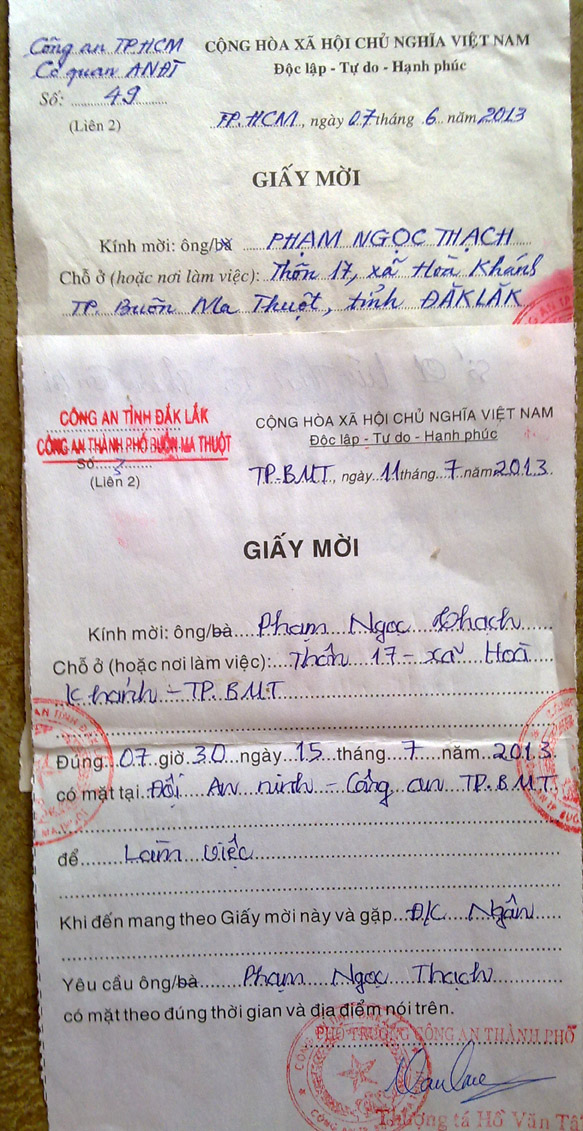 Công an TP.HCM
Cơ quan ANĐT
Số: 49
(Liên 2)
CỘNG HÒA XÃ HỘI CHỦ NGHĨA VIỆT NAM
Độc lập - Tự do - Hạnh phúc
TP.HCM, ngày 07 tháng 6 năm 2013
GIẤY MỜI
Kính mời: ông/bà PHẠM NGỌC THẠCH
Chỗ ở (hoặc nơi làm việc): Thôn 17, xã Hoà Khánh
TP. Buôn Ma Thuột, tỉnh ĐĂKLĂK
CÔNG AN TỈNH ĐẮK LẮK
CÔNG AN THÀNH PHỐ BUÔN MA THUỘT
Số 3
(Liên 2)
CỘNG HÒA XÃ HỘI CHỦ NGHĨA VIỆT NAM
Độc lập - Tự do - Hạnh phúc
TP.BMT, ngày 11 tháng 7 năm 2013
GIẤY MỜI
Kính mời: ông/bà Phạm Ngọc Thạch
Chỗ ở (hoặc nơi làm việc): Thôn 17 - xã Hoà
Khánh - TP. BMT
Đúng 07 giờ 30 ngày 15 tháng 7 năm 2013
có mặt tại Đội An ninh - Công an TP.BMT
để Làm việc
Khi đến mang theo Giấy mời này và gặp Đ/C Ngân
Yêu cầu ông/bà Phạm Ngọc Thạch
có mặt theo đúng thời gian và địa điểm nói trên.
PHÓ TRƯỞNG CÔNG AN THÀNH PHỐ
Thượng tá Hồ Văn